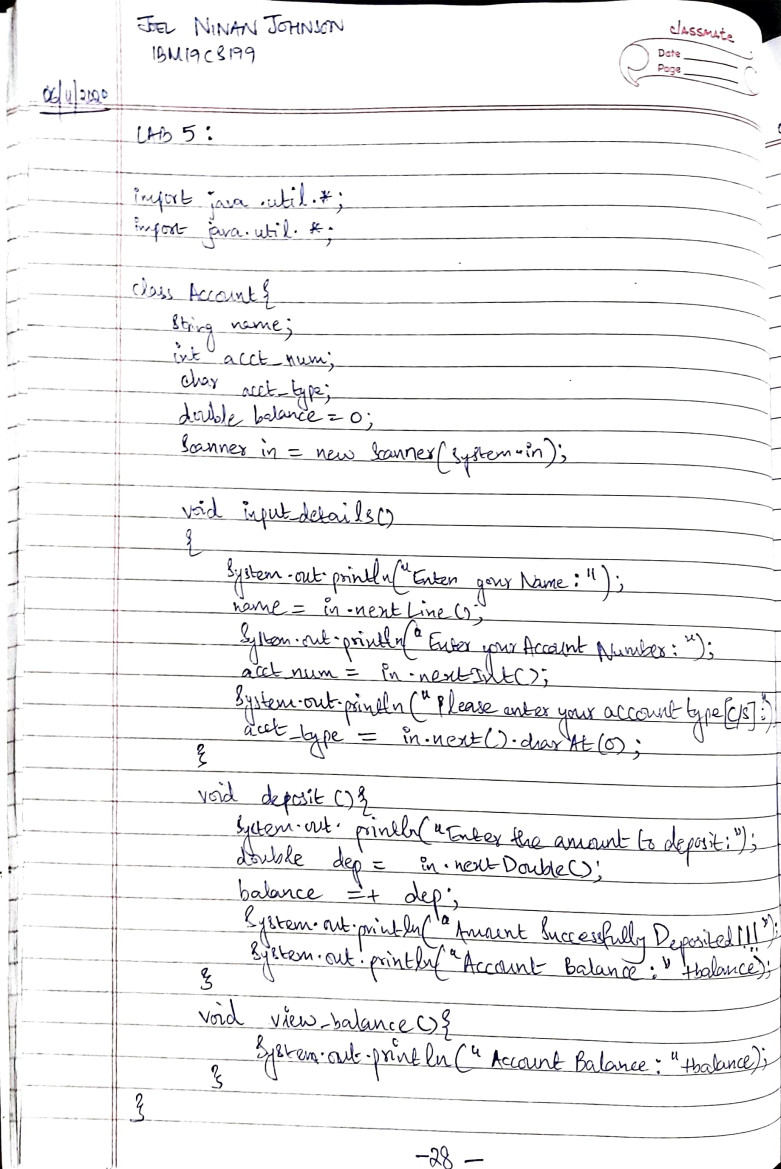 JOEL NINAN JOHNSON
1BM19CS199
classmate
Date
Page
06/11/2020
LAB 5:
import java.util.*;
import java.util.*;
class Account{
String name;
int acct_num;
char acct_type;
double balance = 0;
Scanner in = new Scanner(System.in);
void input_details()
{
System.out.println("Enter your Name:");
name = in.nextLine();
System.out.println("Enter your Account Number:");
acct_num = in.nextInt();
System.out.println("Please enter your account type[C/S]:")
acct_type = in.next().charAt(0);
}
void deposit(){
System.out.println("Enter the amount to deposit:");
double dep = in.nextDouble();
balance =+ dep;
System.out.println("Amount Successfully Deposited!!!");
System.out.println("Account Balance:" +balance);
}
void view_balance(){
System.out.println("Account Balance:" +balance);
}
}
-28-